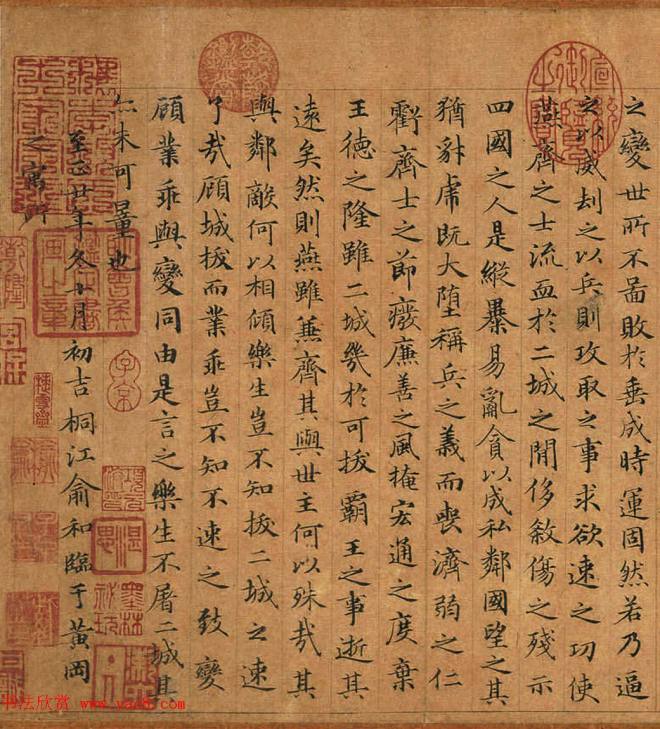 之變世所不啚敗於垂成時運固然若乃逼
之以威刧之以兵則攻取之事求欲速之功使
燕齊之士流血於二城之閒侈敘傷之殘示
四國之人是縱暴易亂貪以成私鄰國望之其
猶豺虎既大墮稱兵之義而喪濟弱之仁
虧齊士之節癈廉善之風掩宏通之度棄
王德之隆雖二城幾於可拔霸王之事逝其
遠矣然則燕雖兼齊其與世主何以殊哉其
與鄰敵何以相傾樂生豈不知拔二城之速
了哉顧城拔而業乖豈不知不速之致變
顧業乖與變同由是言之樂生不屠二城其
亦未可量也
至正廿年冬十月初吉桐江俞和臨于黃岡
之寓所
子京
墨林
书法欣赏 www.yac8.com